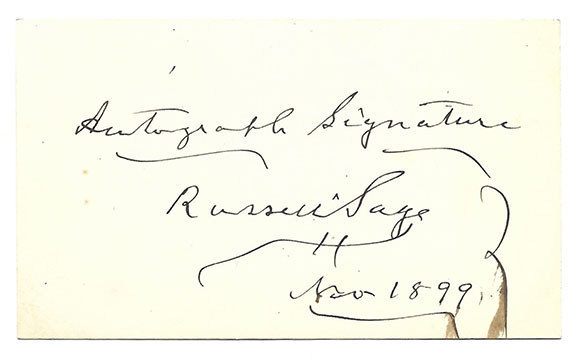 Autograph Signature
Russell Sage
Nov 1899